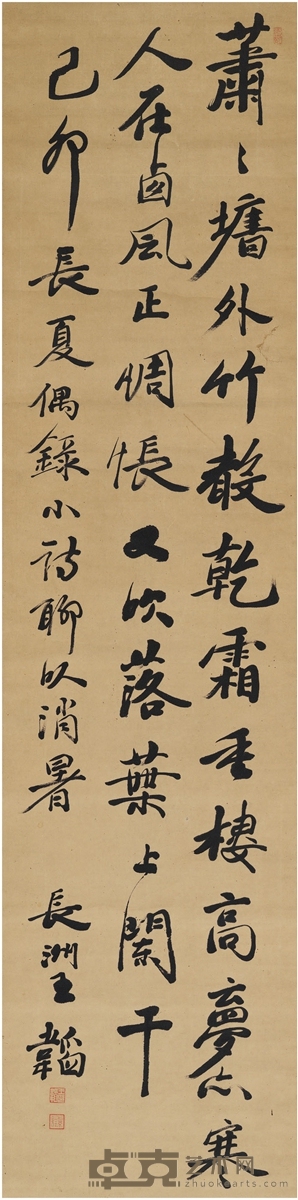 蕭〻墻外竹數乾霜重樓高夢亦寒
人在西風正惆悵又吹落葉上闌干
己卯長夏偶錄小詩聊以消暑
長洲王韜
卓克艺术网
zhuokearts.com